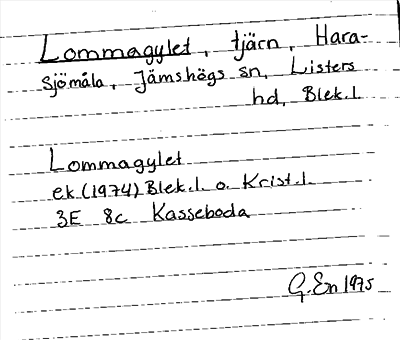 Lommagylet, tjärn, Hara-
sjömåla, Jämshögs sn, Listers
hd, Blek.l.
Lommagylet
ek (1974) Blek.l. o. Krist.l.
3E 8c Kasseboda
G.En 1975